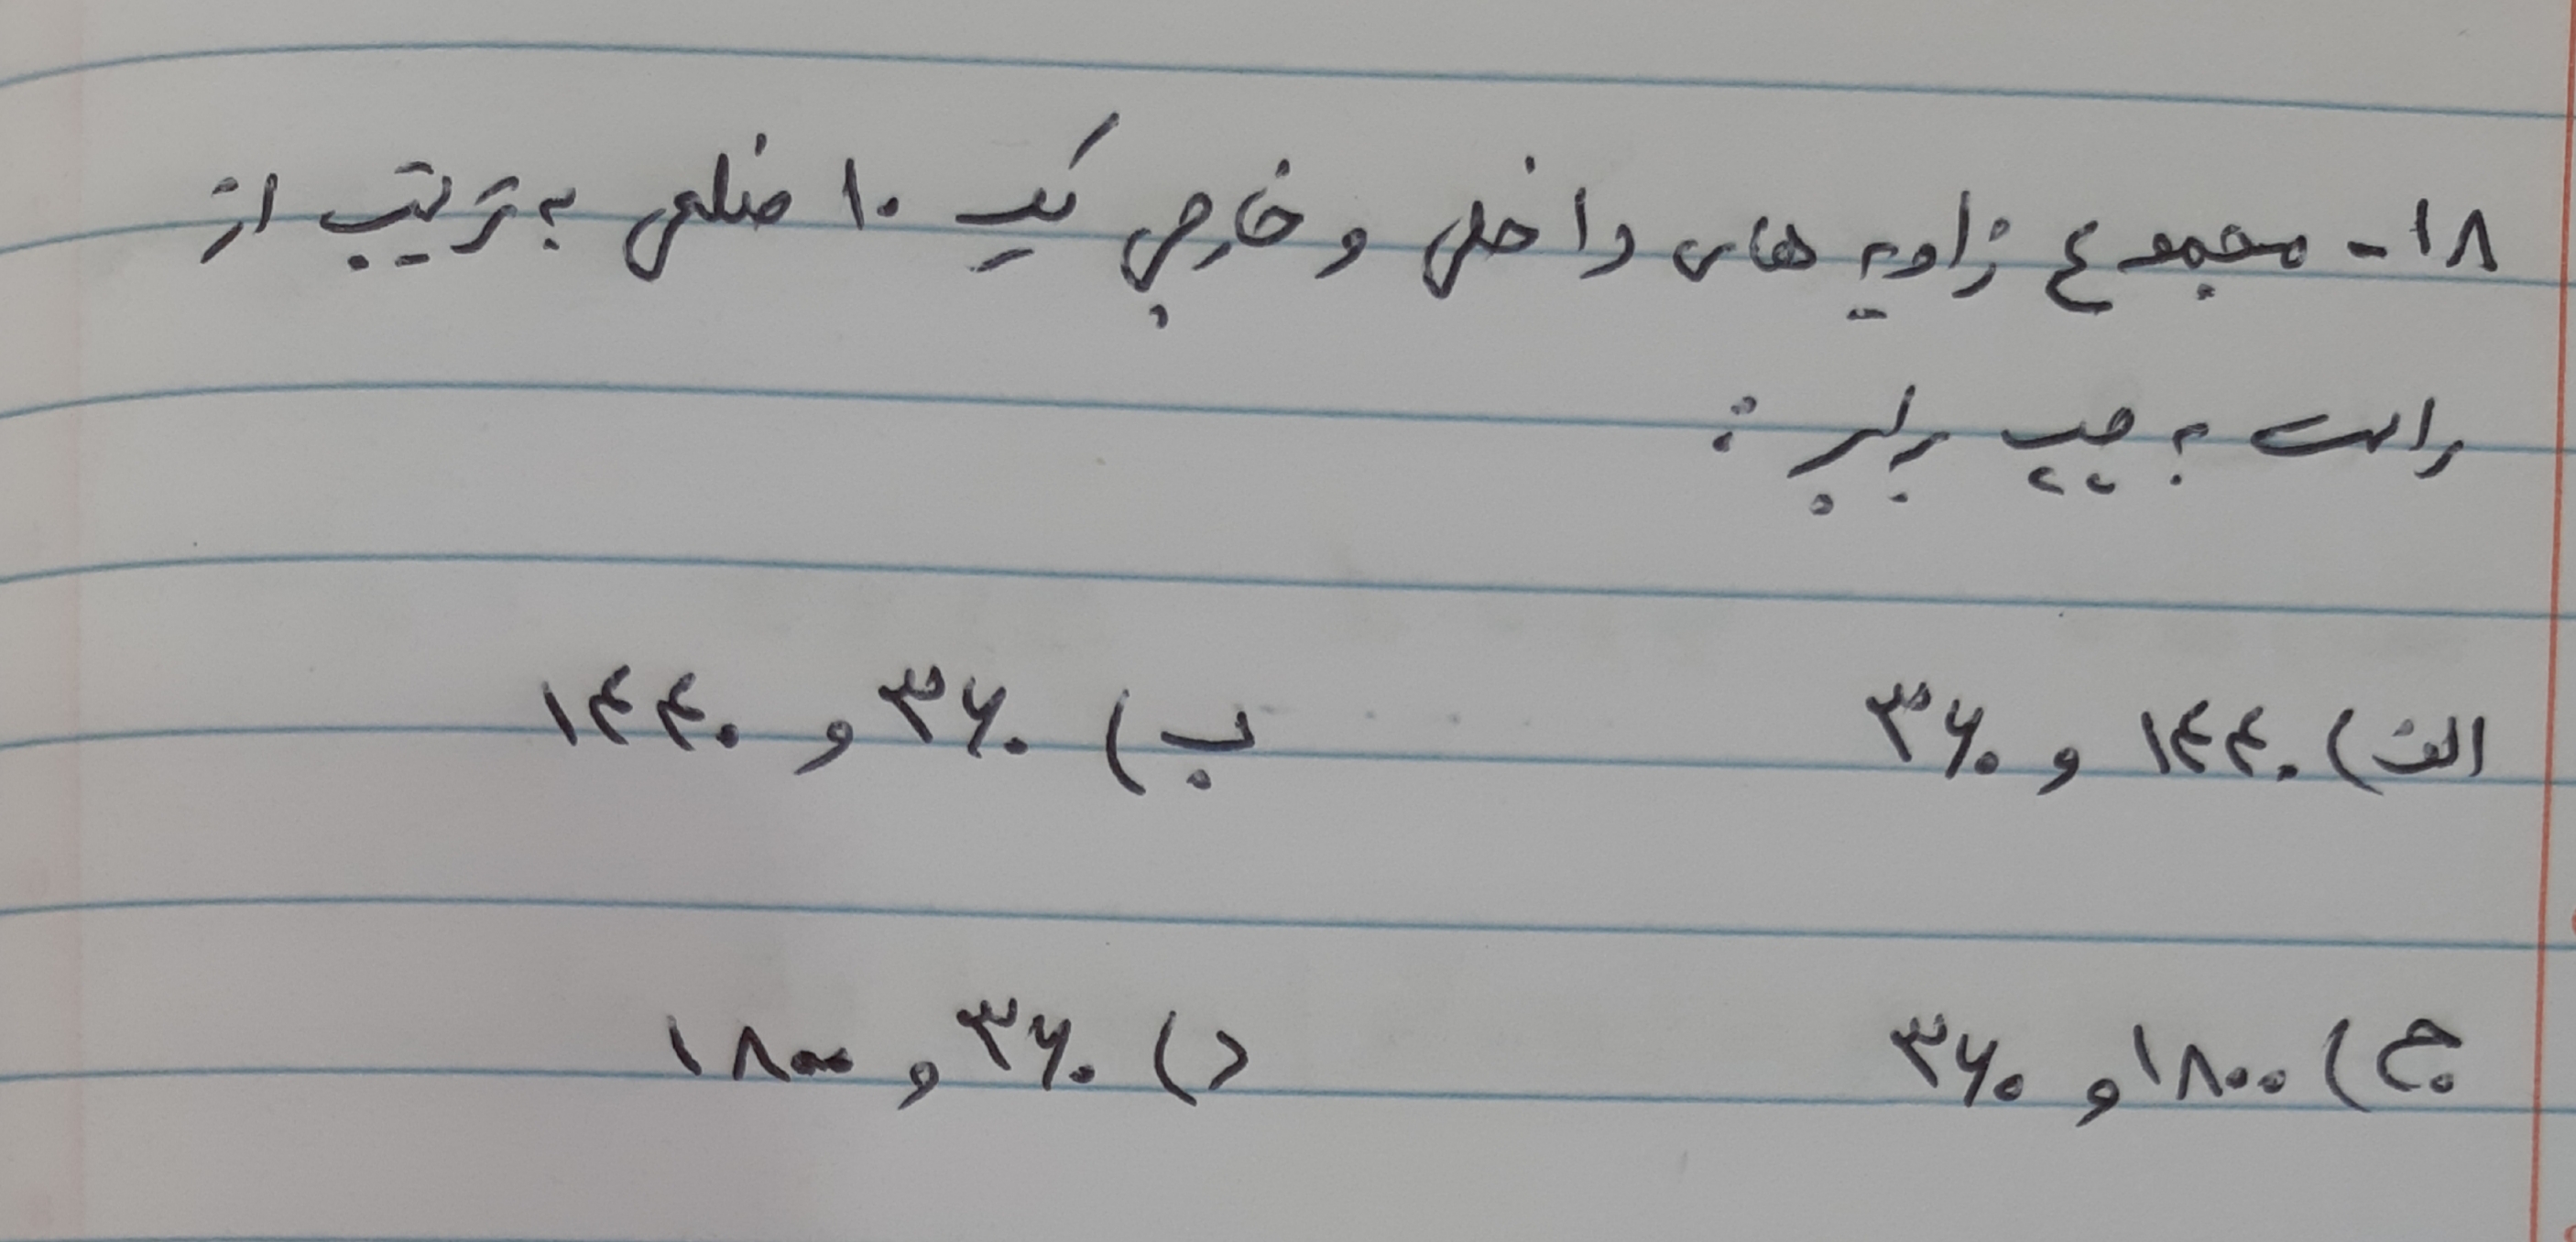 ۱۸- مجموع زاویه های داخلی و خارجی یک ۱۰ ضلعی به ترتیب از
راست به چپ برابر :
الف) ۱۴۴۰ و ۳۶۰ ب) ۳۶۰ و ۱۴۴۰
ج) ۱۸۰۰ و ۳۶۰ د) ۳۶۰ و ۱۸۰۰